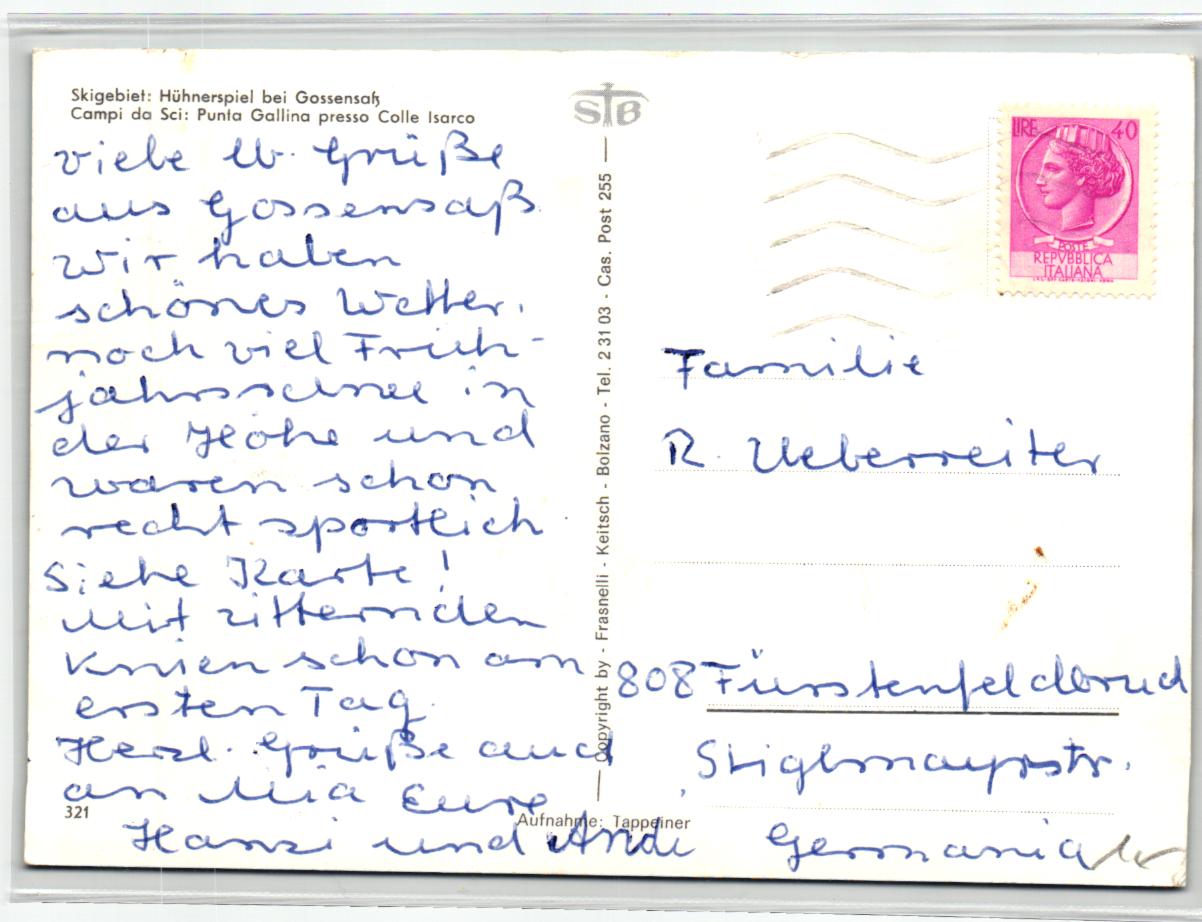 Skigebiet: Hühnerspiel bei Gossensaß
Campi da Sci: Punta Gallina presso Colle Isarco
viele lb. Grüße
aus Gossensaß
wir haben
schönes Wetter,
noch viel Früh-
jahrsschnee in
der Höhe und
waren schon
recht sportlich
Siehe Karte!
Mit zitternden
Knien schon am
ersten Tag.
Herzl. Grüße auch
an Mia Eure
Hansi und Andi
321
Aufnahme: Tappeiner
STB
Copyright by - Frasnelli - Keitsch - Bolzano - Tel. 2 31 03 - Cas. Post 255
LIRE 40
POSTE
REPVBBLICA
ITALIANA
Familie
R. Ueberreiter
808 Fürstenfeldbruck
Stiglmayrstr.
Germania